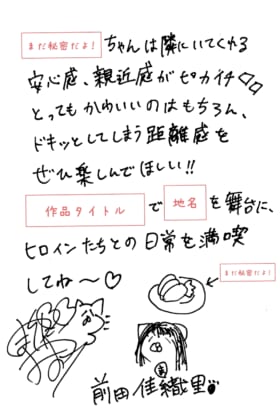 まだ秘密だよ！ちゃんは隣にいてくれる
安心感、親近感がピカイチ
とってもかわいいのはもちろん、
ドキッとしてしまう距離感を
ぜひ楽しんでほしい!!
作品タイトルで地名を舞台に、
ヒロインたちとの日常を満喫
してね〜♡
まだ秘密だよ！
前田佳織里